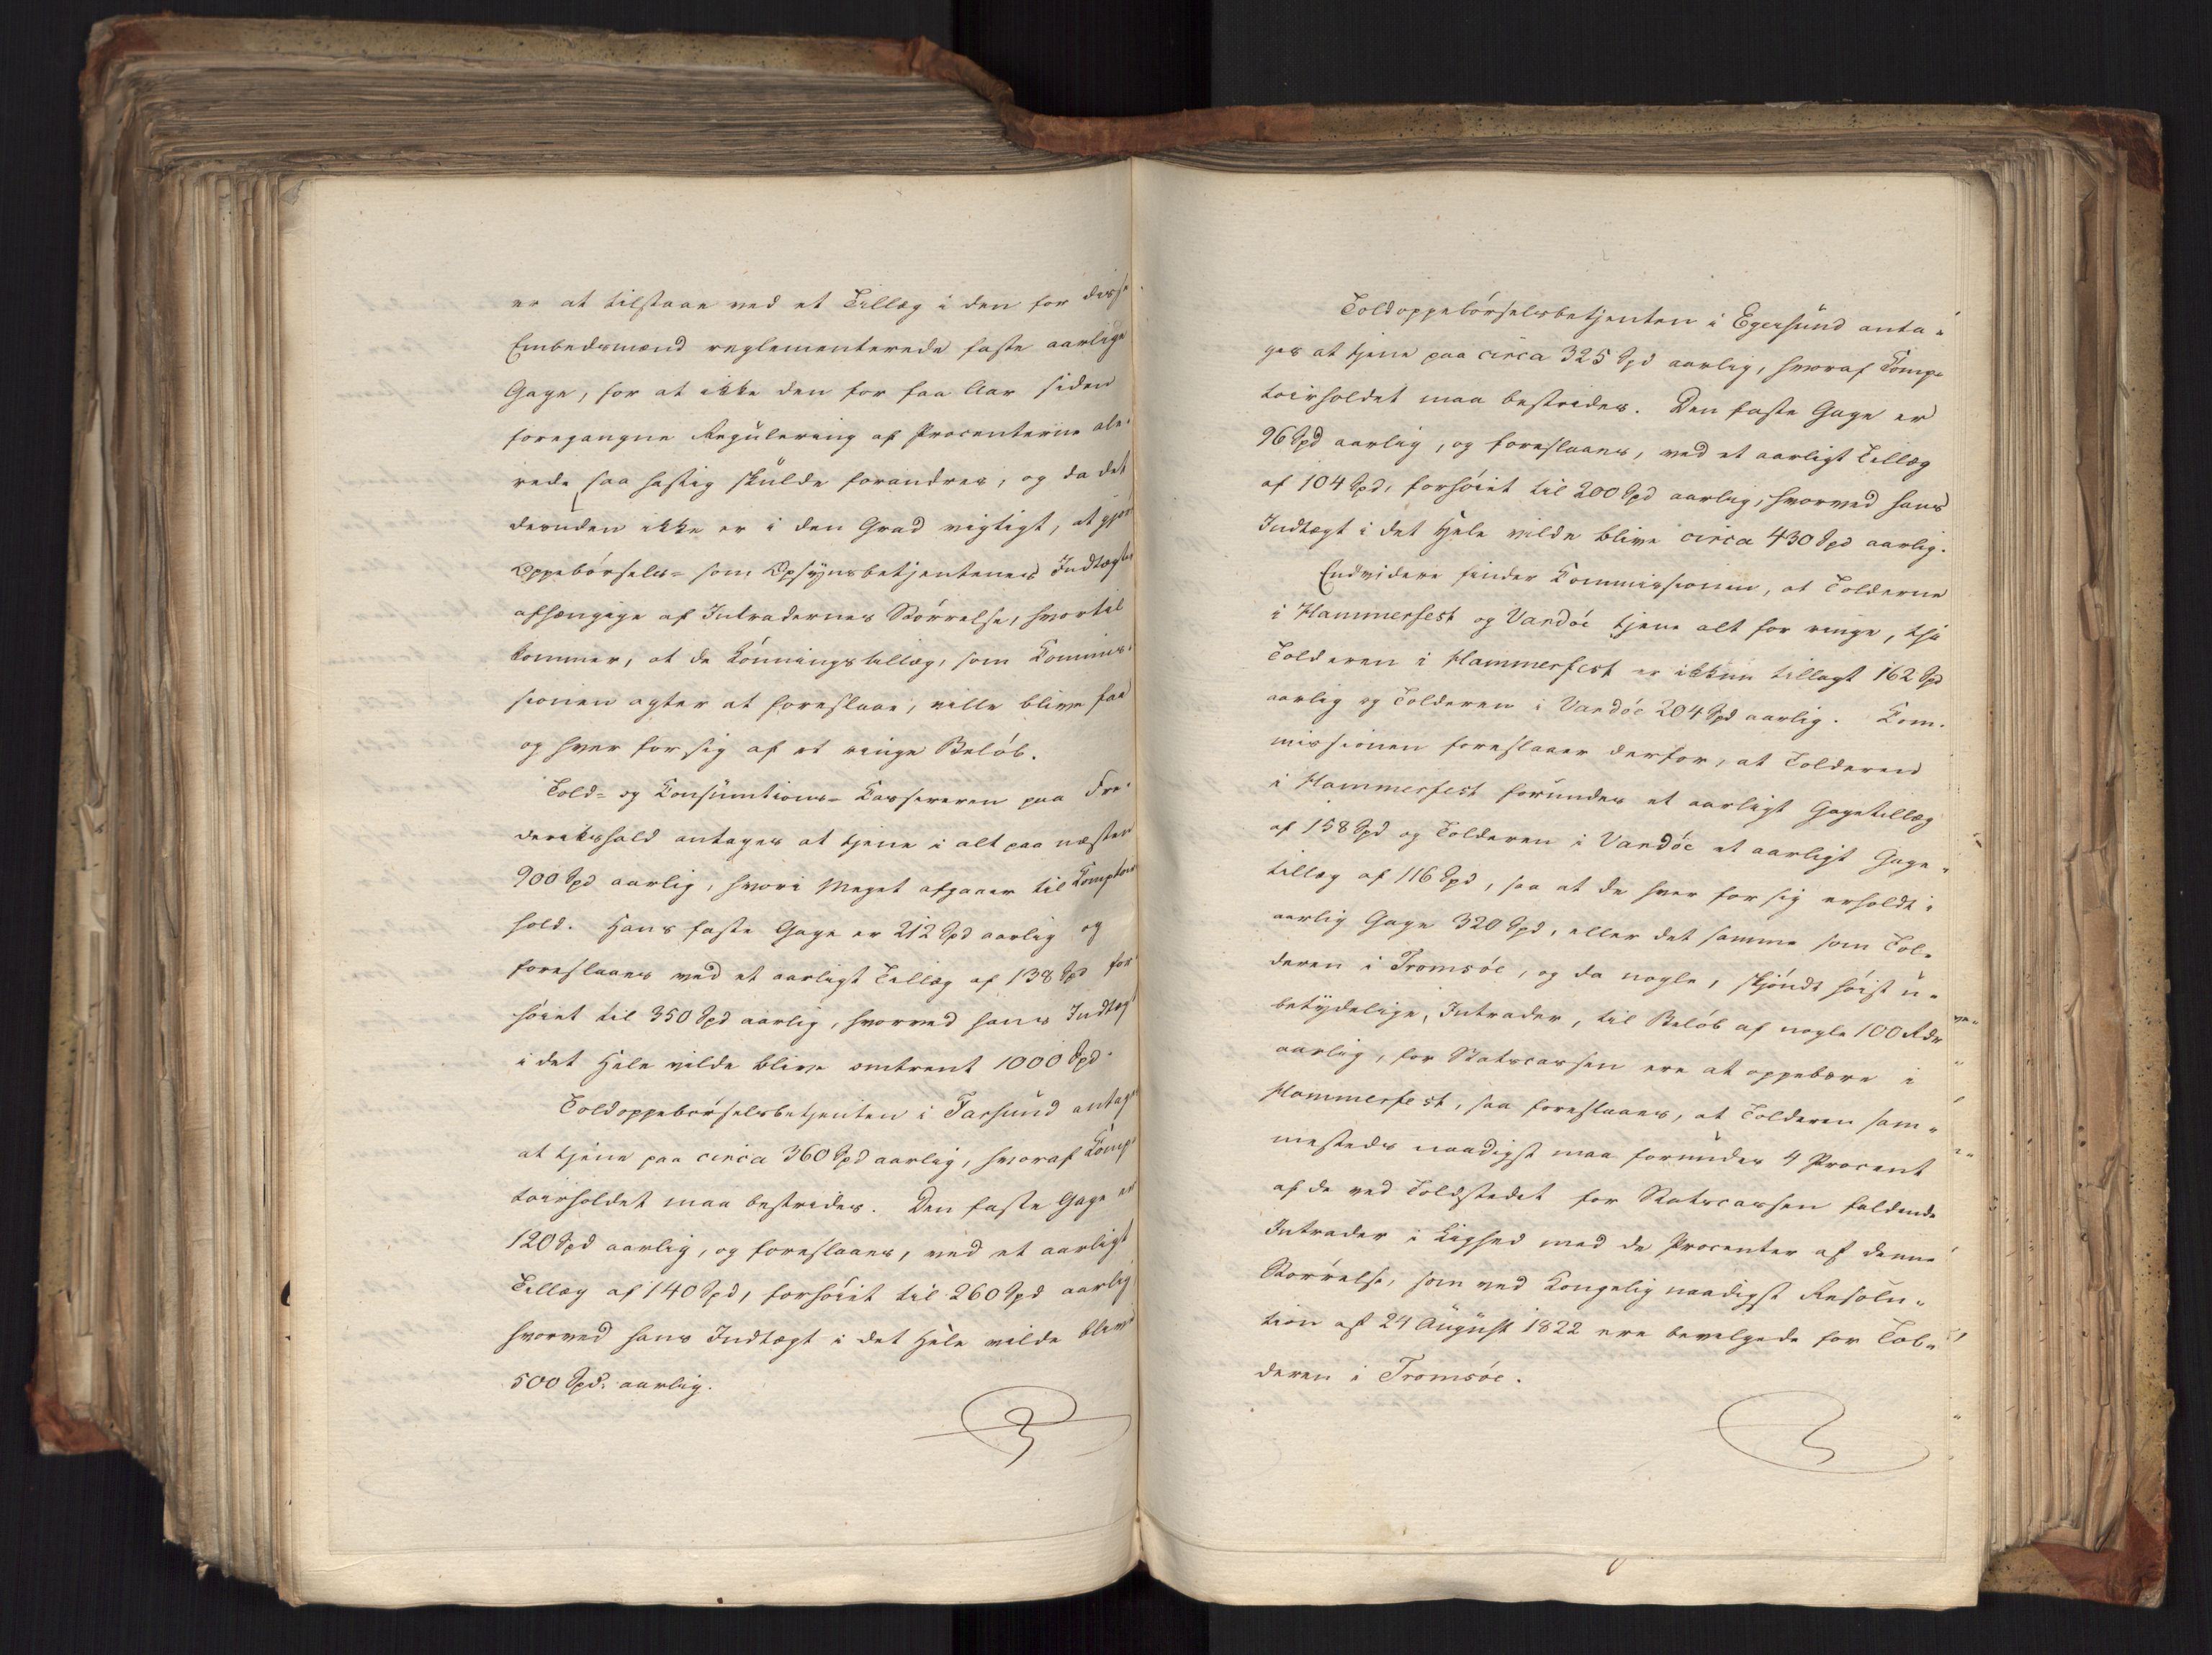 er at tilstaae ved et Tillæg i den for disse
Embedsmænd reglementerede faste aarlige
Gage, for at ikke den for faa Aar siden
foregangne Regulering af Procenterne alle-
rede saa hastig skulde forandres, og da det
desuden ikke er i den Grad vigtigt, at gjøre
Oppebørsels- som Opsynsbetjentenes Indtægter
afhængige af Intradernes Størrelse, hvortil
kommer, at de Lønningstillæg, som Commis-
sionen agter at foreslaae, ville blive faa
og hver for sig af et ringe Beløb.
Told- og Consumtions-Kassereren paa Fre-
derikshald antages at tjene i alt paa næsten
900 Spd aarlig, hvori Meget afgaaer til Comptoir-
hold. Hans faste Gage er 212 Spd aarlig og
foreslaaes ved et aarligt Tillæg af 138 Spd for-
høiet til 350 Spd aarlig, hvorved hans Indtægt
i det Hele vilde blive omtrent 1000 Spd.
Toldoppebørselsbetjenten i Farsund antages
at tjene paa circa 360 Spd aarlig, hvoraf Comp-
toirholdet maa bestrides. Den faste Gage er
120 Spd aarlig, og foreslaaes, ved et aarligt
Tillæg af 140 Spd, forhøiet til 260 Spd aarlig
hvorved hans Indtægt i det Hele vilde blive
500 Spd. aarlig.
Toldoppebørselsbetjenten i Egersund anta-
ges at tjene paa circa 325 Spd aarlig, hvoraf Comp-
toirholdet maa bestrides. Den faste Gage er
96 Spd aarlig, og foreslaaes, ved et aarligt Tillæg
af 104 Spd, forhøiet til 200 Spd aarlig, hvorved hans
Indtægt i det Hele vilde blive circa 430 Spd aarlig.
Endvidere finder Commissionen, at Tolderne
i Hammerfest og Vardöe tjene alt for ringe, thi
Tolderen i Hammerfest er ikkun tillagt 162 Spd
aarlig og Tolderen i Vardöe 204 Spd aarlig. Com-
missionen foreslaaer derfor, at Tolderen
i Hammerfest forundes et aarligt Gagetillæg
af 158 Spd og Tolderen i Vardöe et aarligt Gage-
tillæg af 116 Spd, saa at de hver for sig erholdt i
aarlig Gage 320 Spd, eller det samme som Tol-
deren i Tromsöe, og da nogle, skjöndt høist u-
betydelige, Intrader, til Beløb af nogle 100 Rdr
aarlig, for Statscassen ere at oppebære i
Hammerfest, saa foreslaaes, at Tolderen sam-
mesteds naadigst maa forundes 4 Procent
af de ved Toldstedet for Statscassen faldende
Intrader i Lighed med de Procenter af denne
Størrelse, som ved Kongelig naadigst Resolu-
tion af 24 August 1822 ere bevilgede for Tol-
deren i Tromsöe.